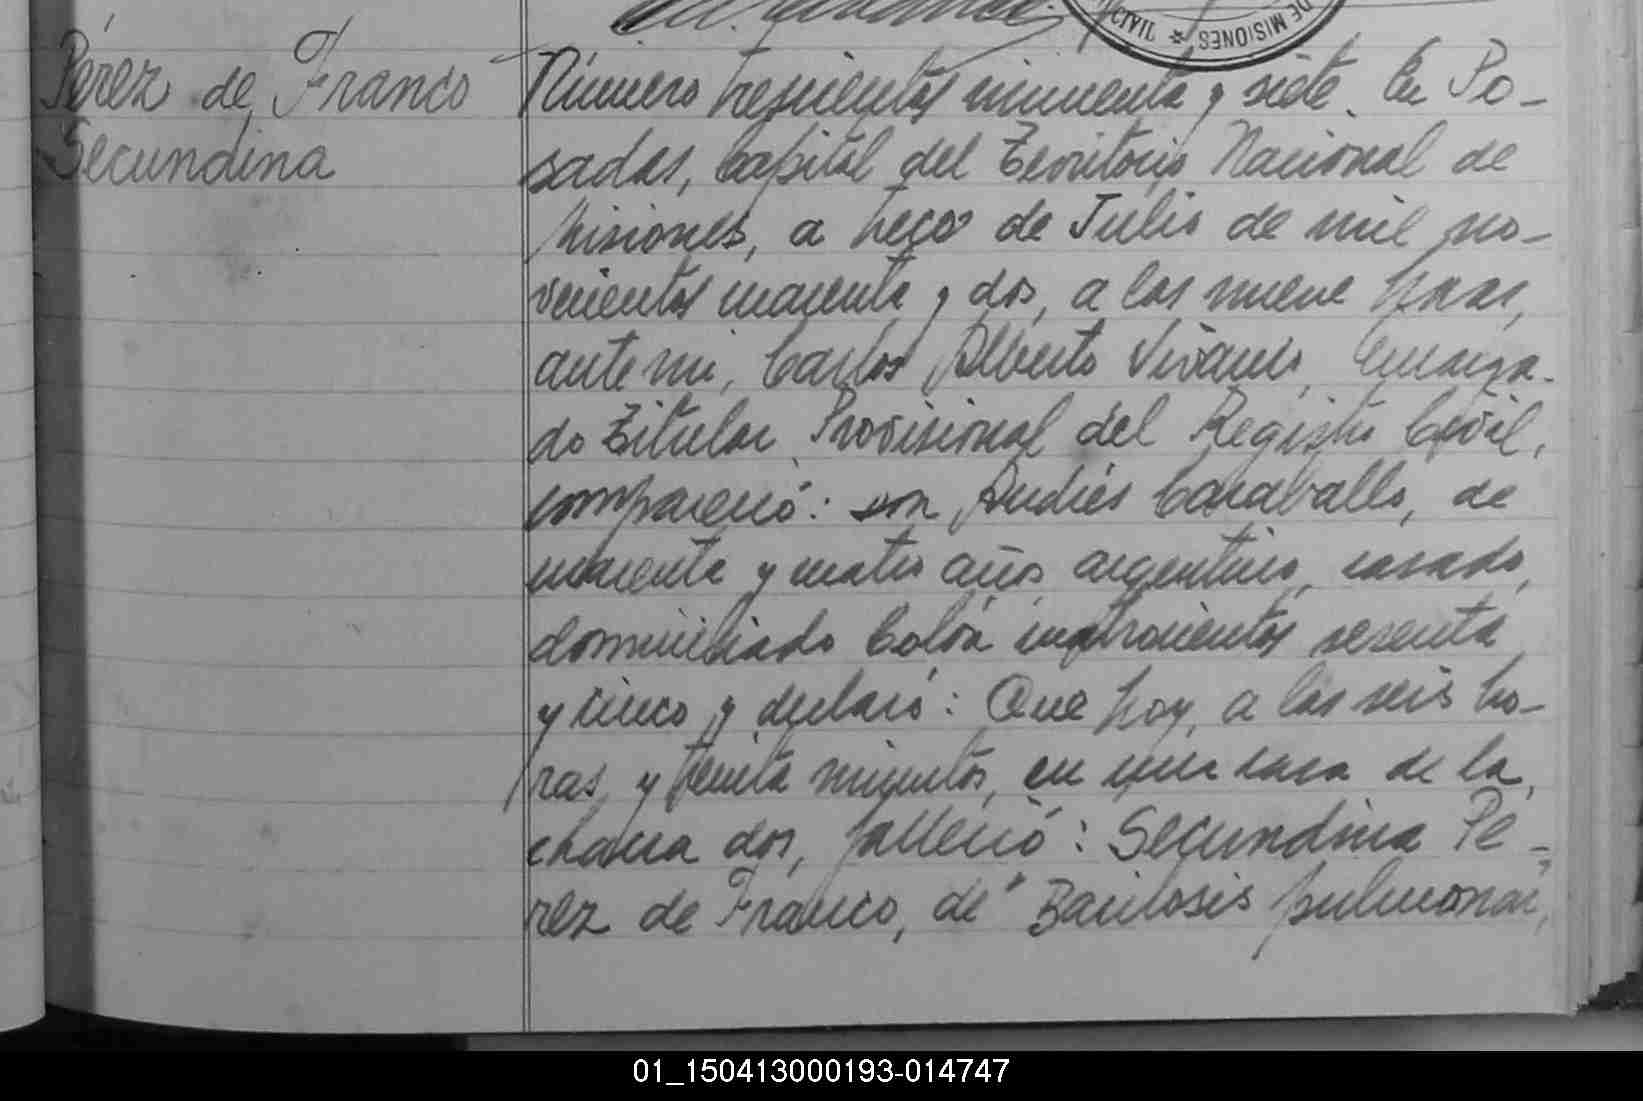 DE MISIONES
Pérez de Franco
Secundina
Número trescientos cincuenta y siete. En Po-
sadas, Capital del Territorio Nacional de
Misiones, a trece de Julio de mil no-
vecientos cuarenta y dos, a las nueve horas,
ante mi, Carlos Alberto Vivanco, Encarga-
do Titular Provisional del Registro Civil,
compareció: don Andrés Caraballo, de
cuarenta y cuatro años, argentino, casado,
domiciliado Colón cuatrocientos sesenta
y cinco y declaró: Que hoy, a las seis ho-
ras y treinta minutos, en una casa de la
chacra dos, falleció: Secundina Pé-
rez de Franco, de "Bacilosis pulmonar,
01_150413000193-014747